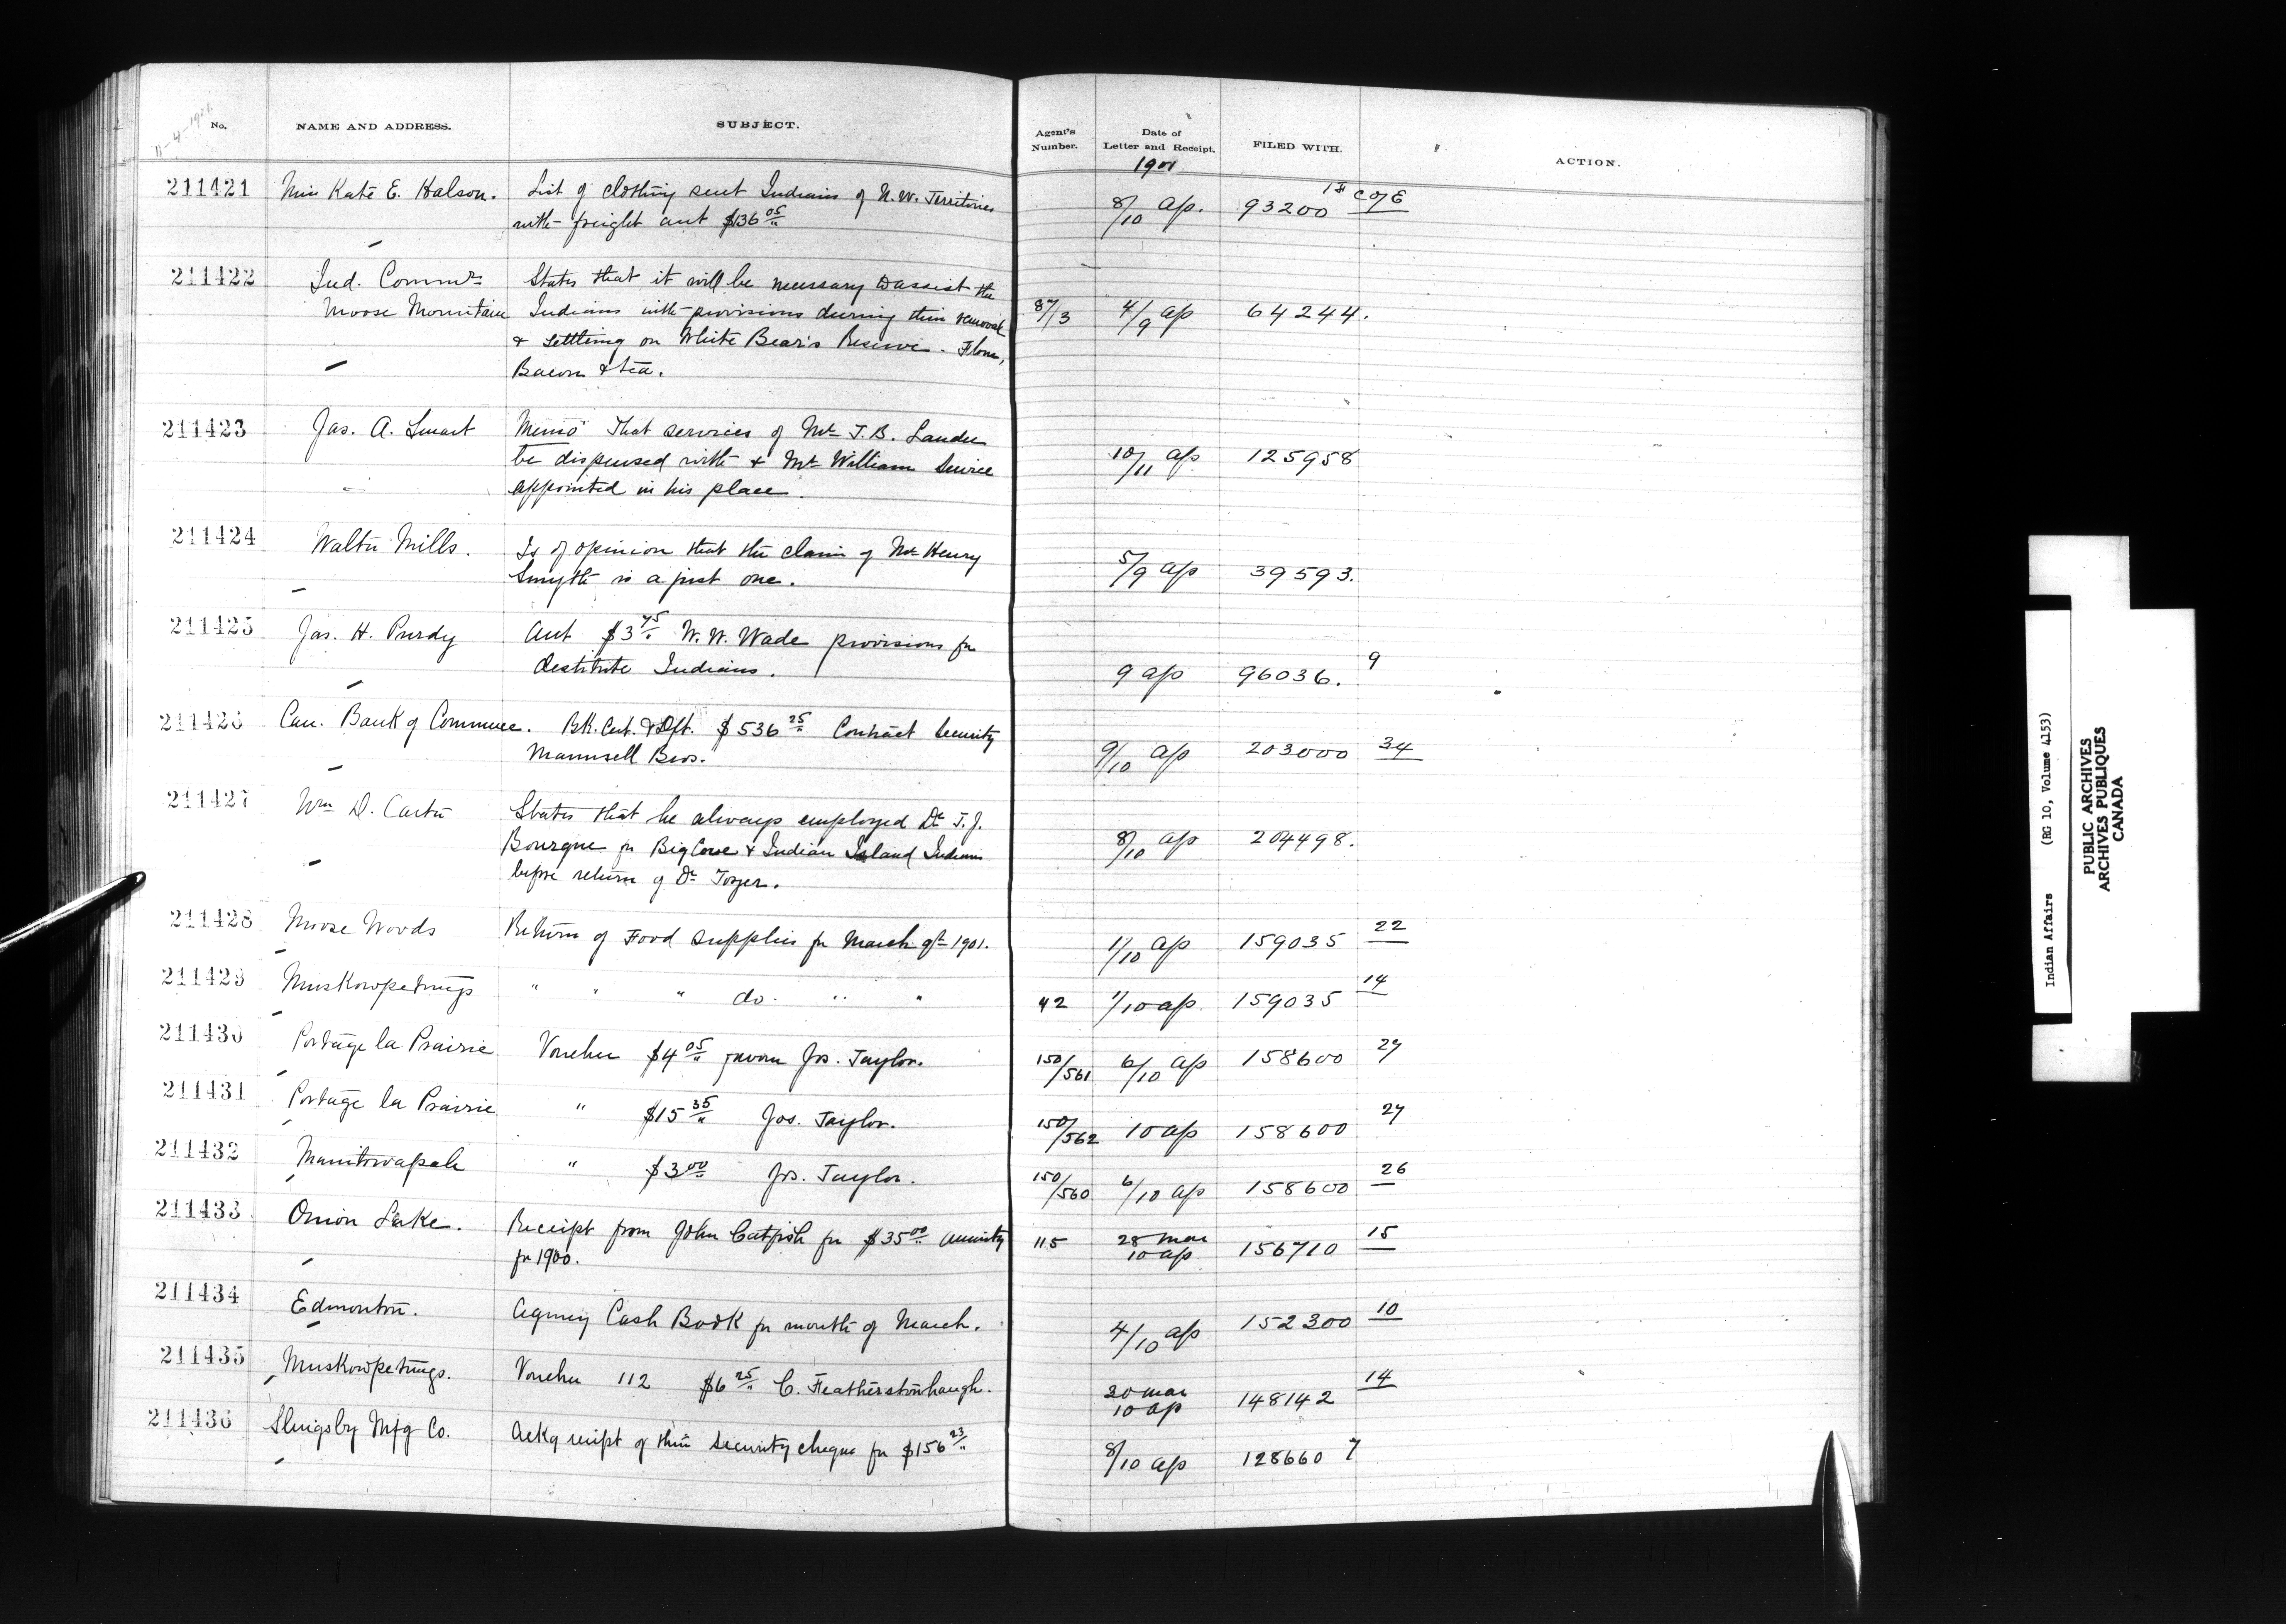 11-4-1901
No. NAME AND ADDRESS. SUBJECT. Agent's Number. Date of Letter and Receipt. FILED WITH. ACTION.
1901
211421 Miss Kate E. Halson. List of clothing sent Indians of N.W. Territories 8/10 ap. 93200 1st C of E
with freight acct $136 05/"
211422 Ind. Commr States that it will be necessary to assist the
Moose Mountain Indians with provisions during their removal 87/3 4/9 ap 64244.
& settling on White Bear's Reserve. Flour,
Bacon & tea.
211423 Jas. A. Smart Memo That services of Mr J.B. Lauder
be dispensed with & Mr William Service 10/11 ap 125958
appointed in his place.
211424 Walter Mills. Is of opinion that the claim of Mr Henry
Smyth is a just one. 5/9 ap 39593.
211425 Jas. H. Purdy Acct $3 45/" W.W. Wade provisions for
destitute Indians. 9 ap 96036. 9
211426 Can. Bank of Commerce. Bk. Cert. & Dft. $536 25/" Contract Security
Maunsell Bros. 9/10 ap 203000 34
211427 Wm D. Carter States that he always employed Dr T.J.
Bourque for Big Cove & Indian Island Indians 8/10 ap 204498.
before return of Dr Tozer.
211428 Moose Woods Return of Food supplies for March qr 1901. 1/10 ap 159035 22
211429 Muskowpetungs " " " do. " " 42 1/10 ap. 159035 14
211430 Portage la Prairie Voucher $4 05/" favour Jos. Taylor. 150/561 6/10 ap 158600 27
211431 Portage la Prairie " $15 35/" Jos. Taylor. 150/562 10 ap 158600 27
211432 Manitowapah " $3 00/" Jos. Taylor. 150/560 6/10 ap 158600 26
211433 Onion Lake. Receipt from John Catfish for $35 00/" annuity 115 28 mar 10 ap 156710 15
for 1900.
211434 Edmonton. Agency Cash Book for month of March. 4/10 ap 152300 10
211435 Muskowpetungs. Voucher 112 $6 25/" C. Featherstonhaugh. 20 mar 10 ap 148142 14
211436 Slingsby Mfg Co. Ackg receipt of their security cheque for $156 23/" 8/10 ap 128660 7
Indian Affairs (RG 10, Volume 4153)
PUBLIC ARCHIVES
ARCHIVES PUBLIQUES
CANADA